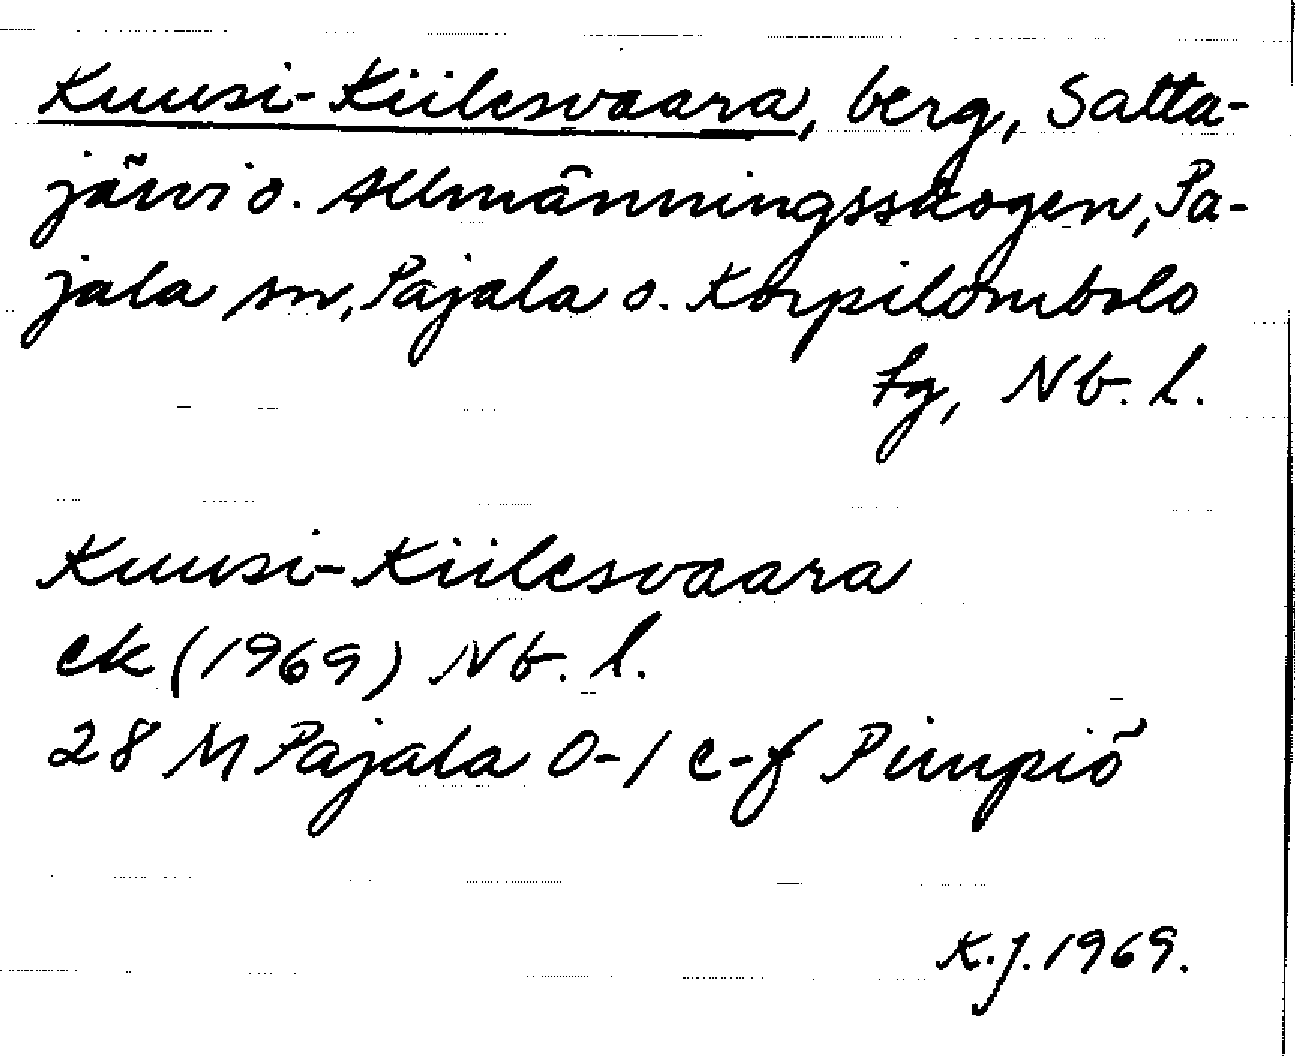 Kuusi-Kiilesvaara, berg, Satta-
järvi o. Allmänningsskogen, Pa-
jala sn, Pajala o. Korpilombolo
tg, Nb. l.
Kuusi-Kiilesvaara
ek (1969) Nb. l.
28 M Pajala 0-1 e-f Pimpiö
K.J. 1969.